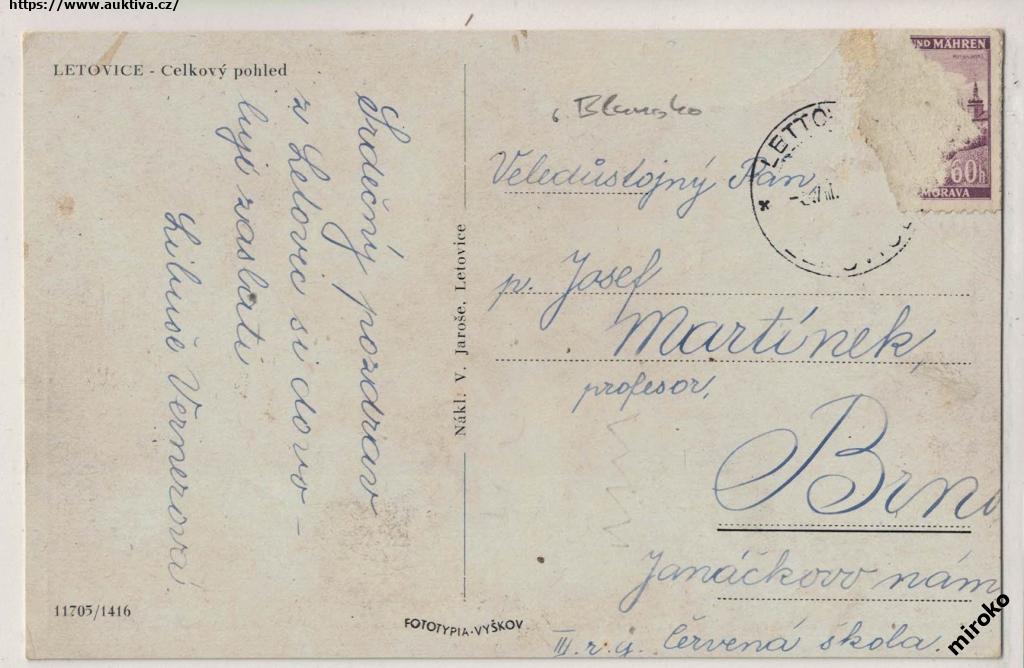 https://www.auktiva.cz/
LETOVICE - Celkový pohled
Srdečný pozdrav
z Letovic si dovo-
luji zaslati
Libuše Vernerová
11705/1416
Nákl. V. Jaroše, Letovice
FOTOTYPIA-VYŠKOV
Blansko
UND MÄHREN
60h
MORAVA
LETTO
Veledůstojný Pán
p. Josef
Martínek,
profesor,
Brno
Janáčkovo nám
III. r. g. Červená škola.
miroko